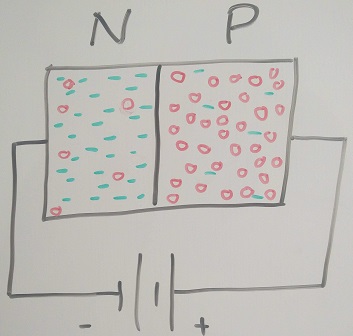 N P
- +